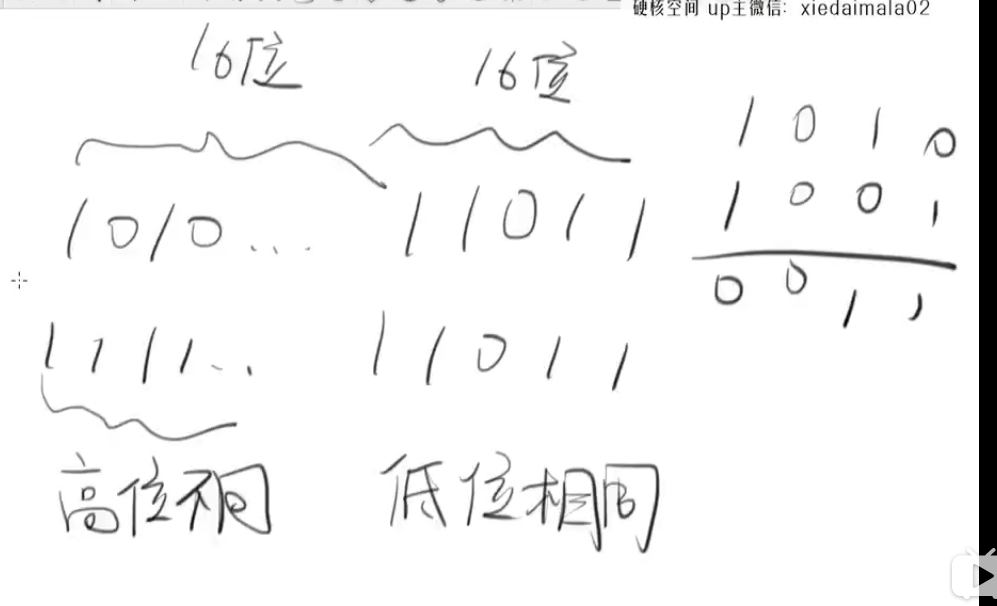 硬核空间 up主微信: xiedaimala02
16位 16位
1010... 11011
1111... 11011
高位不同 低位相同
1010
1001
0011